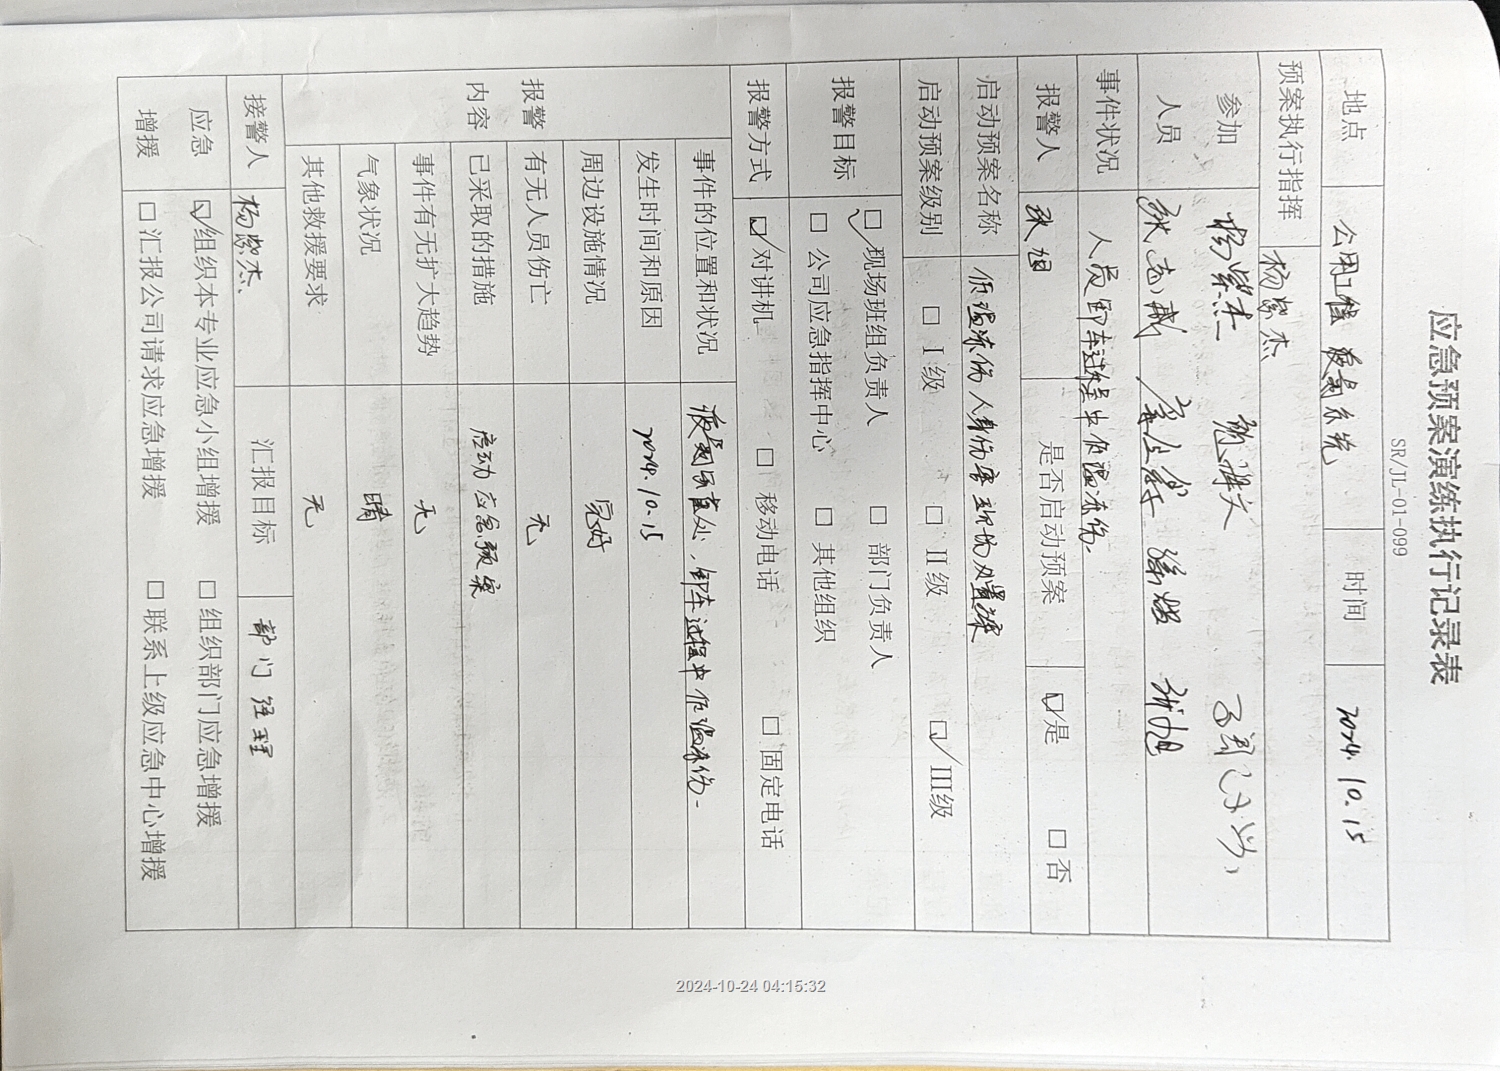 应急预案演练执行记录表
SR/JL-01-099
地点 公用工程 液氮系统 时间 2024.10.15
预案执行指挥 杨紫杰
参加 杨紫杰
人员 张志诚 张旭
事件状况 人员卸车过程中低温冻伤.
报警人 张旭 是否启动预案 ☑是 □否
启动预案名称 低温冻伤人身伤害现场处置方案
启动预案级别 □ I级 □ II级 ☑ III级
报警目标 ☑ 现场班组负责人 □ 部门负责人
□ 公司应急指挥中心 □ 其他组织
报警方式 ☑ 对讲机 □ 移动电话 □ 固定电话
报警
内容
事件的位置和状况 液氮储罐处,卸车过程中低温冻伤.
发生时间和原因 2024.10.15
周边设施情况 完好
有无人员伤亡 无
已采取的措施 启动应急预案
事件有无扩大趋势 无
气象状况 晴
其他救援要求 无
接警人 杨紫杰 汇报目标 部门经理
应急 ☑组织本专业应急小组增援 □ 组织部门应急增援
增援 □ 汇报公司请求应急增援 □ 联系上级应急中心增援
2024-10-24 04:15:32